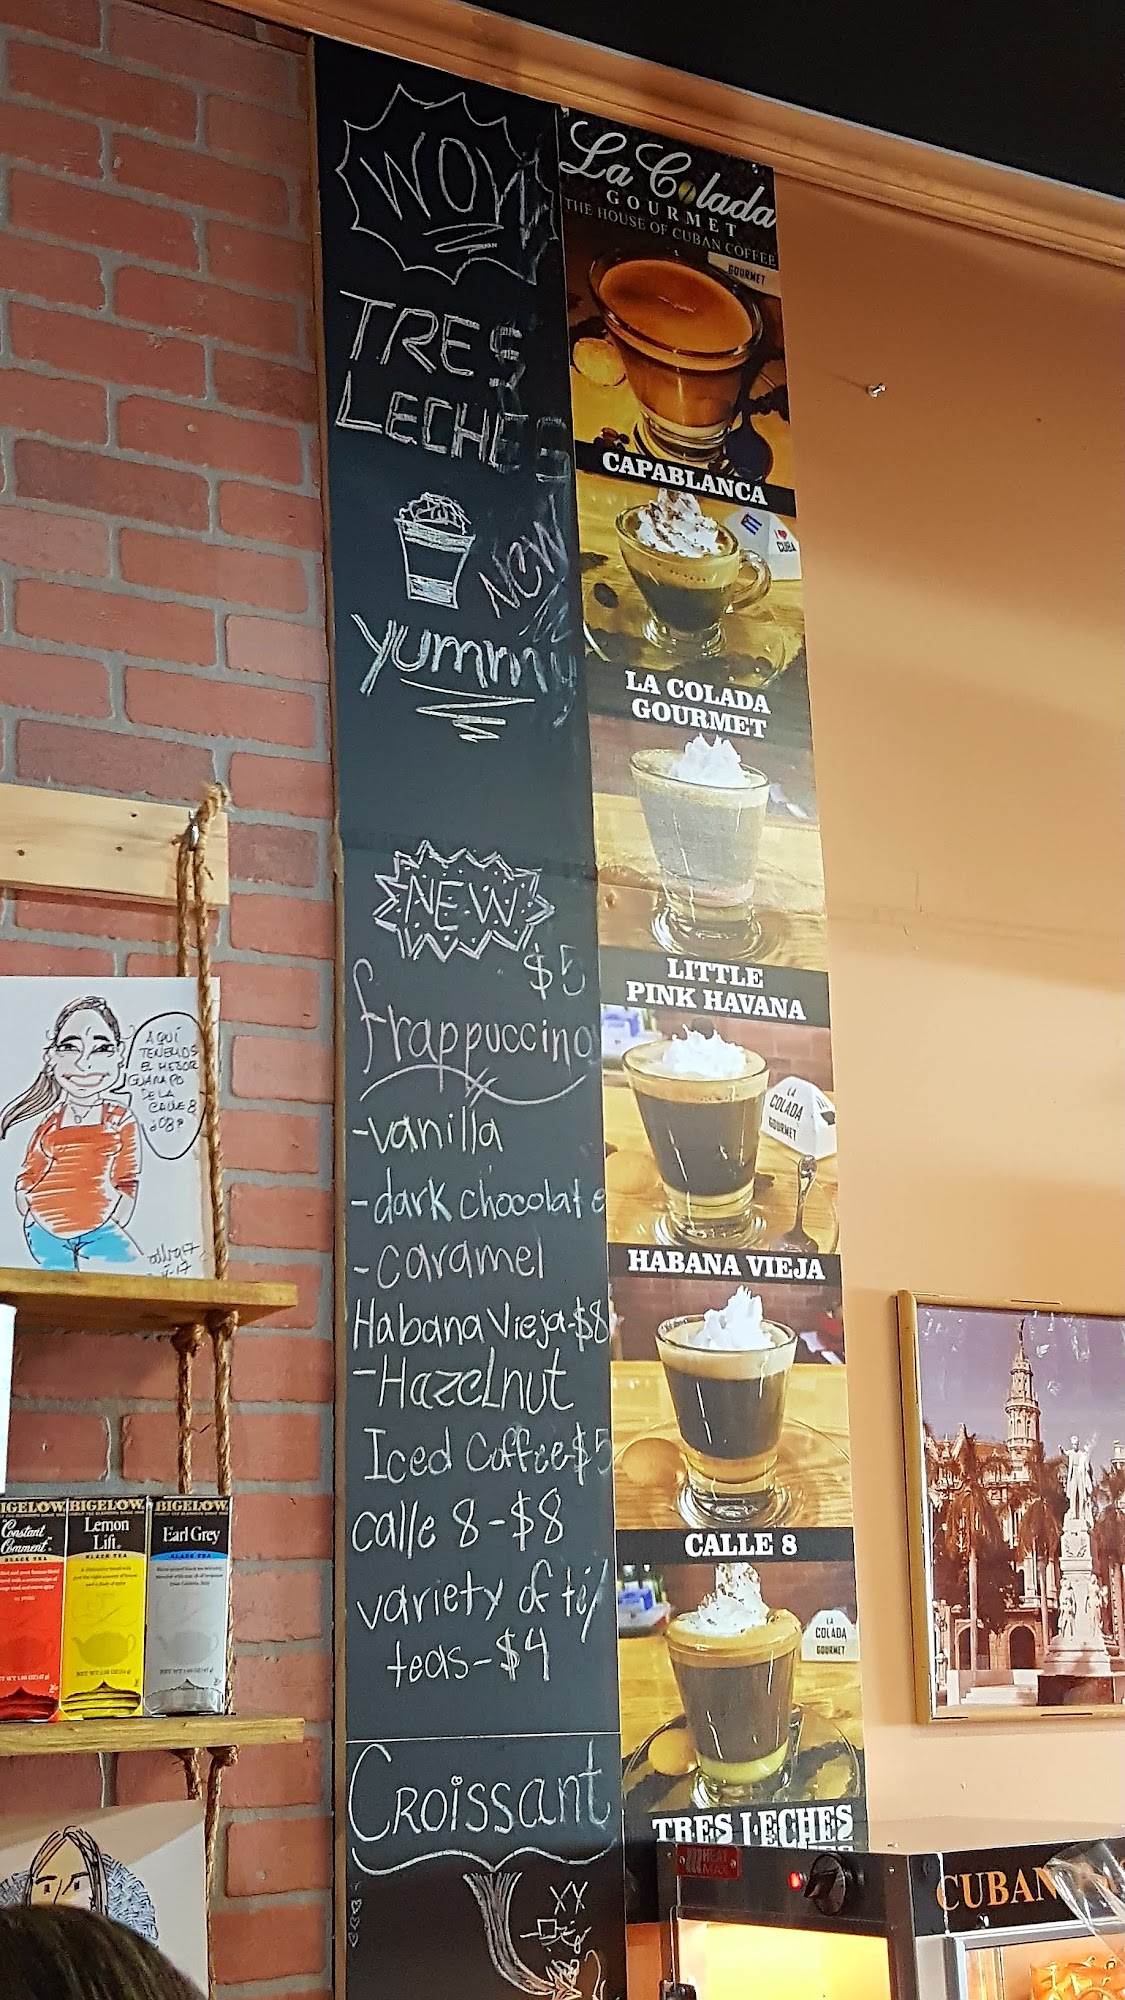 WOW
TRES
LECHES
NEW
yummy
NEW
$5
frappuccino
-vanilla
-dark chocolate
-caramel
Habana Vieja-$8
-Hazelnut
Iced Coffee $5
calle 8-$8
variety of té/
teas-$4
Croissant
XX
La Colada
GOURMET
THE HOUSE OF CUBAN COFFEE
GOURMET
CAPABLANCA
I ❤
CUBA
LA COLADA
GOURMET
LITTLE
PINK HAVANA
LA
COLADA
GOURMET
HABANA VIEJA
CALLE 8
LA
COLADA
GOURMET
TRES LECHES
HEAT
MAX
CUBAN
AQUÍ
TENEMOS
EL MEJOR
GUARAPO
DE LA
CALLE 8
BIGELOW
"Constant
Comment"
BLACK TEA
BIGELOW
Lemon
Lift
BLACK TEA
BIGELOW
Earl Grey
BLACK TEA